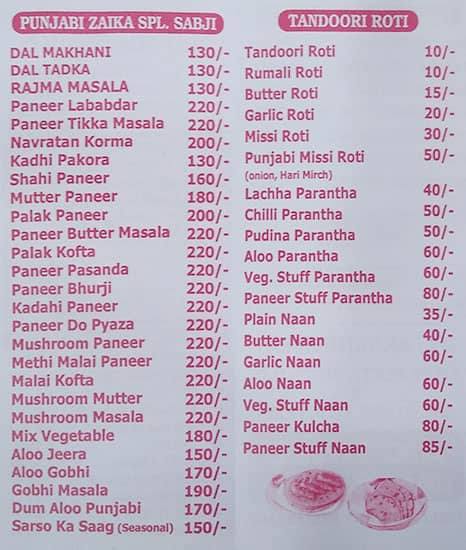 PUNJABI ZAIKA SPL. SABJI
DAL MAKHANI 130/-
DAL TADKA 130/-
RAJMA MASALA 130/-
Paneer Lababdar 220/-
Paneer Tikka Masala 220/-
Navratan Korma 200/-
Kadhi Pakora 130/-
Shahi Paneer 160/-
Mutter Paneer 180/-
Palak Paneer 200/-
Paneer Butter Masala 220/-
Palak Kofta 220/-
Paneer Pasanda 220/-
Paneer Bhurji 220/-
Kadahi Paneer 220/-
Paneer Do Pyaza 220/-
Mushroom Paneer 220/-
Methi Malai Paneer 220/-
Malai Kofta 220/-
Mushroom Mutter 220/-
Mushroom Masala 220/-
Mix Vegetable 180/-
Aloo Jeera 150/-
Aloo Gobhi 170/-
Gobhi Masala 190/-
Dum Aloo Punjabi 170/-
Sarso Ka Saag (Seasonal) 150/-
TANDOORI ROTI
Tandoori Roti 10/-
Rumali Roti 10/-
Butter Roti 15/-
Garlic Roti 20/-
Missi Roti 30/-
Punjabi Missi Roti 50/-
(onion, Hari Mirch)
Lachha Parantha 40/-
Chilli Parantha 50/-
Pudina Parantha 50/-
Aloo Parantha 60/-
Veg. Stuff Parantha 60/-
Paneer Stuff Parantha 80/-
Plain Naan 35/-
Butter Naan 40/-
Garlic Naan 60/-
Aloo Naan 60/-
Veg. Stuff Naan 60/-
Paneer Kulcha 80/-
Paneer Stuff Naan 85/-